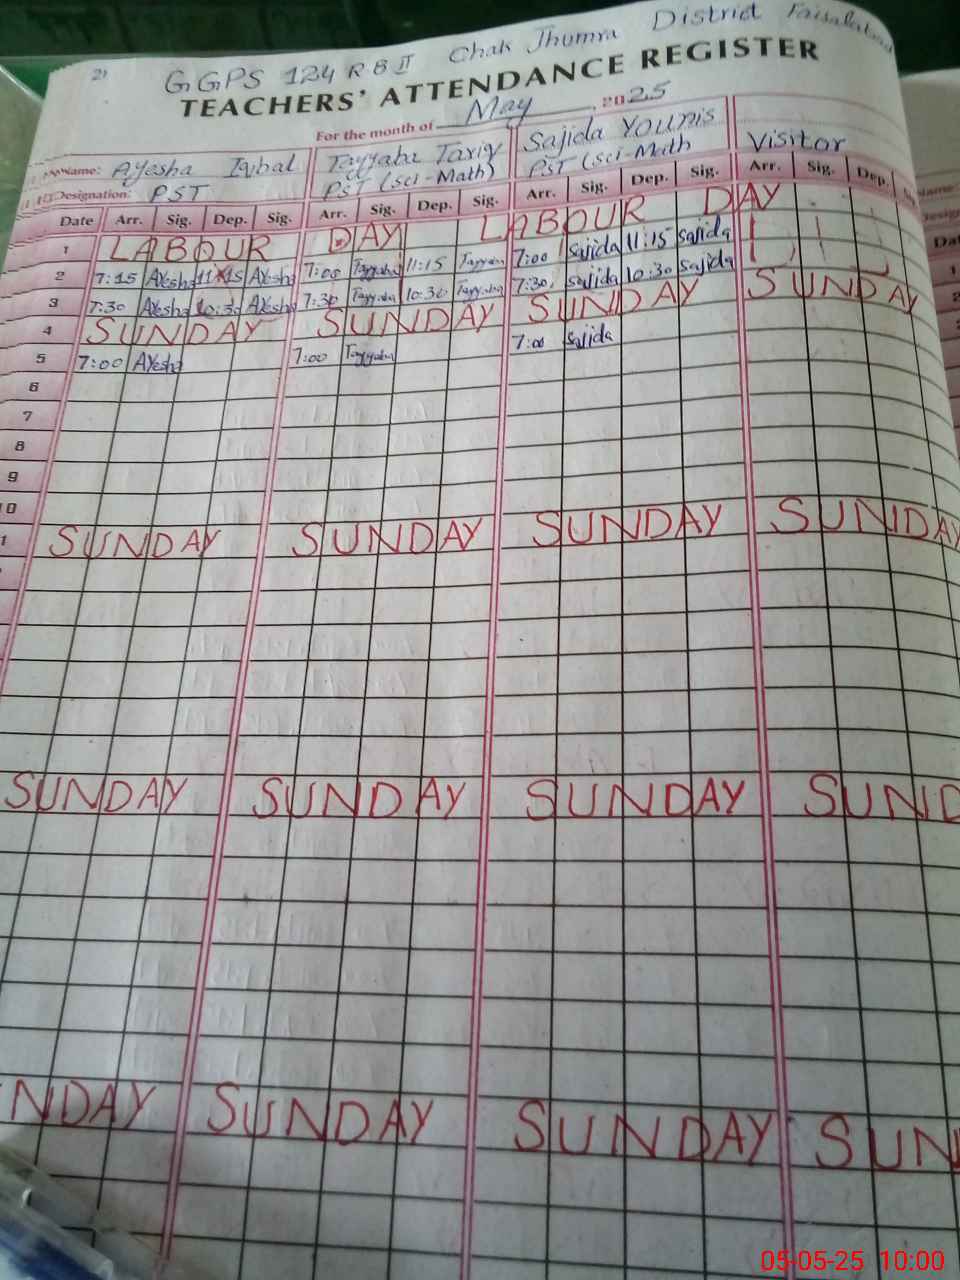 21
GGPS 124 RB II Chak Jhumra District Faisalabad
TEACHERS' ATTENDANCE REGISTER
For the month of May, 2025
Name: Ayesha Iqbal Tayyaba Tariq Sajida Younis Visitor
Designation: PST PST (Sci-Math) PST (Sci-Math
Date Arr. Sig. Dep. Sig. Arr. Sig. Dep. Sig. Arr. Sig. Dep. Sig. Arr. Sig. Dep.
1 LABOUR DAY LABOUR DAY
2 7:15 Ayesha 11:15 Ayesha 7:00 Tayyaba 11:15 Tayyaba 7:00 Sajida 11:15 Sajida
3 7:30 Ayesha 10:30 Ayesha 7:30 Tayyaba 10:30 Tayyaba 7:30 Sajida 10:30 Sajida
4 SUNDAY SUNDAY SUNDAY SUNDAY
5 7:00 Ayesha 7:00 Tayyaba 7:00 Sajida
6
7
8
9
0
1 SUNDAY SUNDAY SUNDAY SUNDAY
SUNDAY SUNDAY SUNDAY SUND
NDAY SUNDAY SUNDAY SUN
05-05-25 10:00